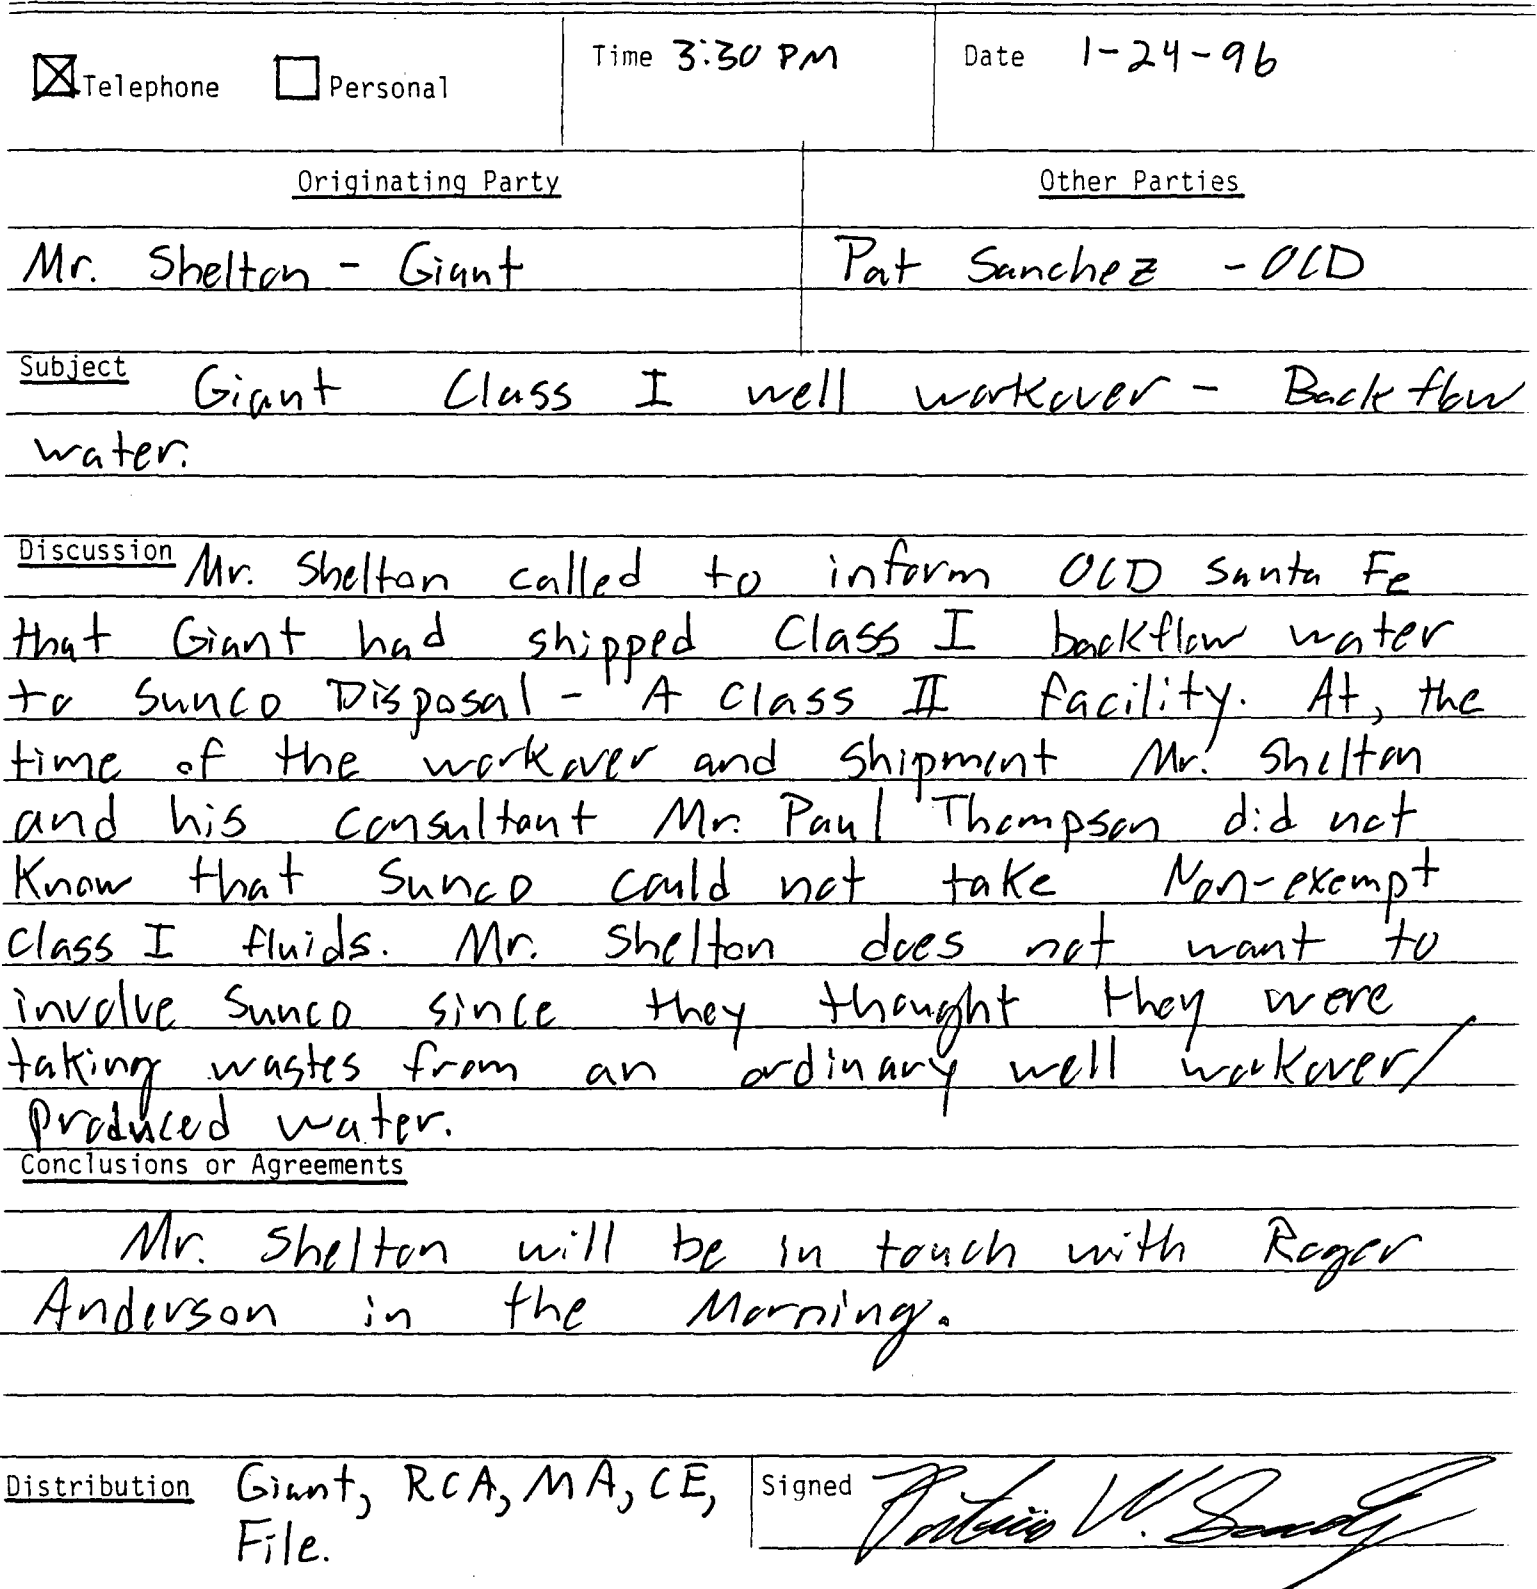 Telephone Personal Time 3:30 PM Date 1-24-96
Originating Party Other Parties
Mr. Shelton - Giant Pat Sanchez - OCD
Subject Giant Class I well workover - Backflow
water.
Discussion Mr. Shelton called to inform OCD Santa Fe
that Giant had shipped Class I backflow water
to Sunco Disposal - A Class II facility. At, the
time of the workover and shipment Mr. Shelton
and his consultant Mr. Paul Thompson did not
Know that Sunco could not take Non-exempt
Class I fluids. Mr. Shelton does not want to
involve Sunco since they thought they were
taking wastes from an ordinary well workover/
produced water.
Conclusions or Agreements
Mr. Shelton will be in touch with Roger
Anderson in the Morning.
Distribution Giant, RCA, MA, CE, Signed Patricio W. Sanchez
File.